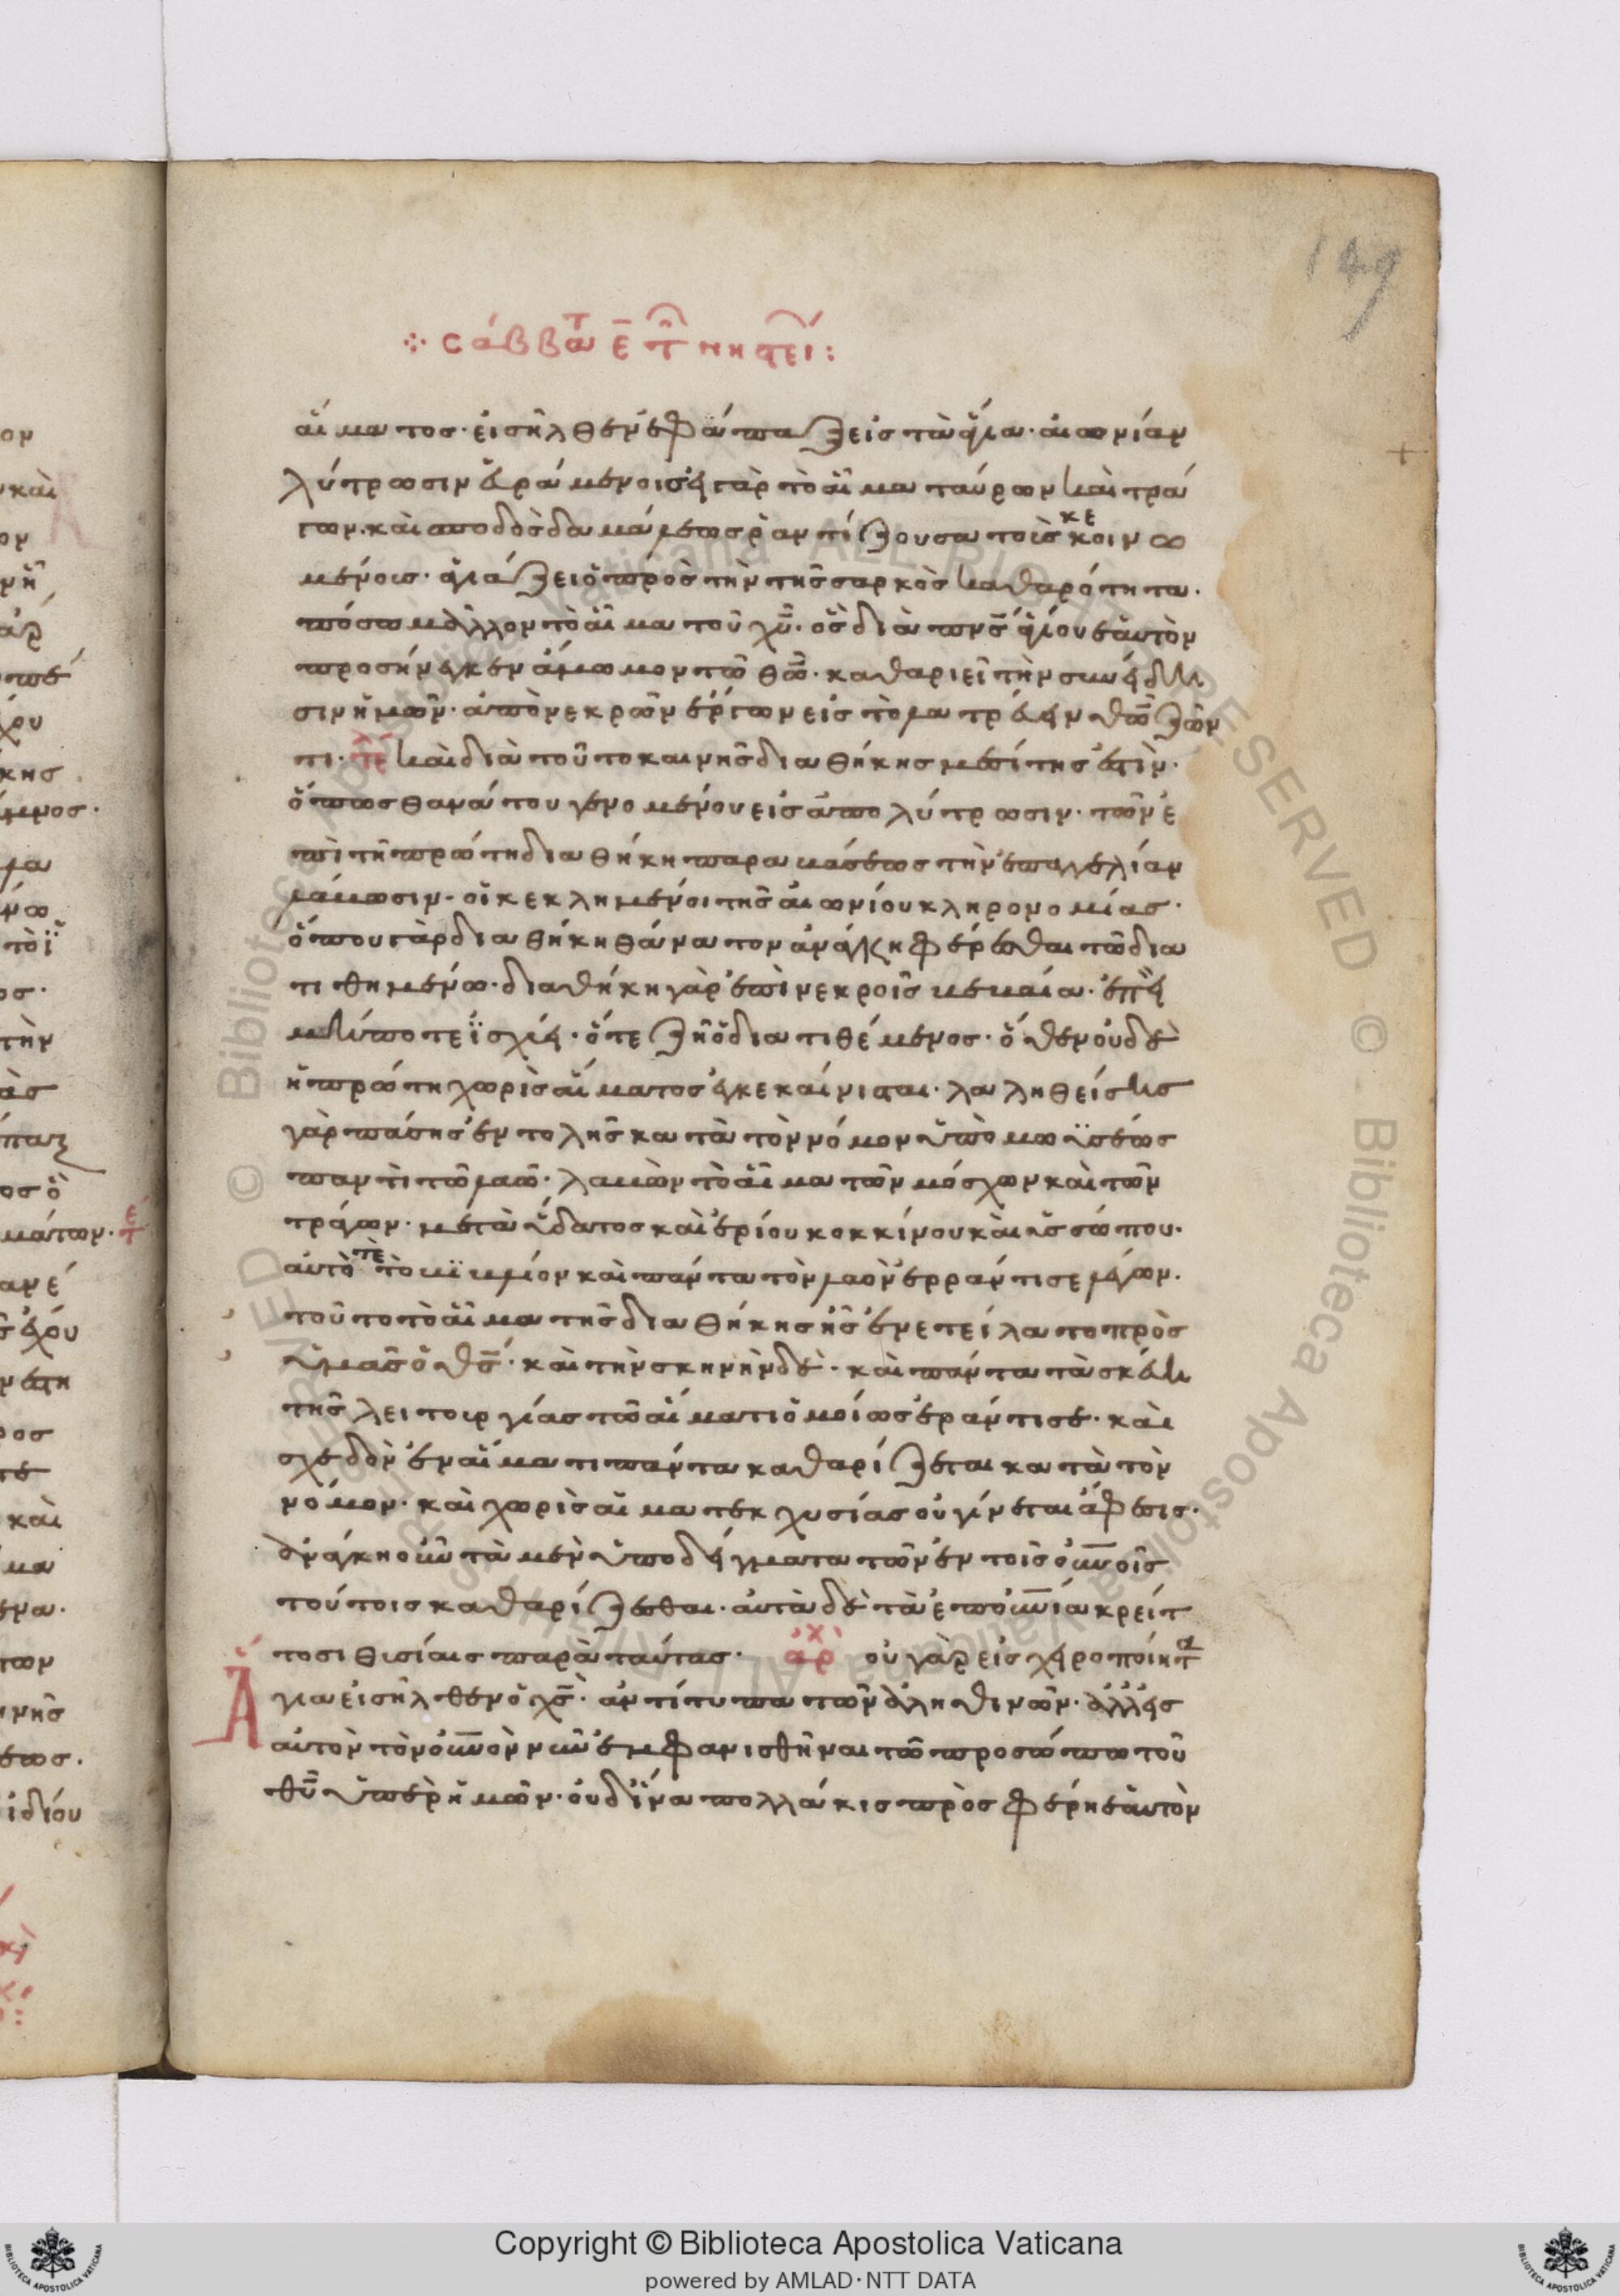 149
σαββατ ε τ νηστει:
αἵματος· εἰσῆλθεν ἐφάπαξ εἰς τὰ ἅγια· αἰωνίαν
λύτρωσιν εὑράμενος· εἰ γὰρ τὸ αἷμα ταύρων καὶ τρά
γων· καὶ σποδὸς δαμάλεως ῥαντίζουσα τοὺς κεκοινω
μένους· ἁγιάζει πρὸς τὴν τῆς σαρκὸς καθαρότητα·
πόσω μᾶλλον τὸ αἷμα τοῦ χυ· ὃς διὰ πνς ἁγίου ἑαυτὸν
προσήνεγκεν ἄμωμον τῶ θῶ· καθαριεῖ τὴν συνείδη
σιν ἡμῶν· ἀπὸ νεκρῶν ἔργων εἰς τὸ λατρεύειν θῶ ζῶν
τι· τε καὶ διὰ τοῦτο καινῆς διαθήκης μεσίτης ἐστίν·
ὅπως θανάτου γενομένου εἰς ἀπολύτρωσιν· τῶν ἐ
πὶ τῆ πρώτη διαθήκη παραβάσεως τὴν ἐπαγγελίαν
λάβωσιν· οἱ κεκλημένοι τῆς αἰωνίου κληρονομίας·
ὅπου γὰρ διαθήκη θάνατον ἀνάγκη φέρεσθαι τῶ δια
τιθημένω· διαθήκη γὰρ ἐπὶ νεκροῖς βεβαία· ἐπεὶ
μήποτε ἰσχύει· ὅτε ζῆ ὁ διατιθέμενος· ὅθεν οὐδὲ
ἡ πρώτη χωρὶς αἵματος ἐγκεκαίνισται· λαληθείσης
γὰρ πάσης ἐντολῆς κατὰ τὸν νόμον ὑπὸ μωϋσέως
παντὶ τῶ λαῶ· λαβὼν τὸ αἷμα τῶν μόσχων καὶ τῶν
τράγων· μετὰ ὕδατος καὶ ἐρίου κοκκίνου καὶ ὑσσώπου·
αὐτό τε τὸ βιβλίον καὶ πάντα τὸν λαὸν ἐρράντισε λέγων·
τοῦτο τὸ αἷμα τῆς διαθήκης ἧς ἐνετείλατο πρὸς
ὑμᾶς ὁ θς· καὶ τὴν σκηνὴν δὲ· καὶ πάντα τὰ σκεύη
τῆς λειτουργίας τῶ αἵματι ὁμοίως ἐράντισε· καὶ
σχεδὸν ἐν αἵματι πάντα καθαρίζεται κατὰ τὸν
νόμον· καὶ χωρὶς αἱματεκχυσίας οὐ γίνεται ἄφεσις·
ἀνάγκη οὖν τὰ μὲν ὑποδείγματα τῶν ἐν τοῖς οὐνοῖς
τούτοις καθαρίζεσθαι· αὐτὰ δὲ τὰ ἐπουνία κρείτ
τοσι θυσίαις παρὰ ταύτας· ἀρχ οὐ γὰρ εἰς χειροποίητα
Ἅγια εἰσῆλθεν ὁ χς· ἀντίτυπα τῶν ἀληθινῶν· ἀλλ' εἰς
αὐτὸν τὸν οὐνὸν νῦν ἐμφανισθῆναι τῶ προσώπω τοῦ
θυ ὑπὲρ ἡμῶν· οὐδ' ἵνα πολλάκις προσφέρη ἑαυτὸν
Copyright © Biblioteca Apostolica Vaticana
powered by AMLAD·NTT DATA